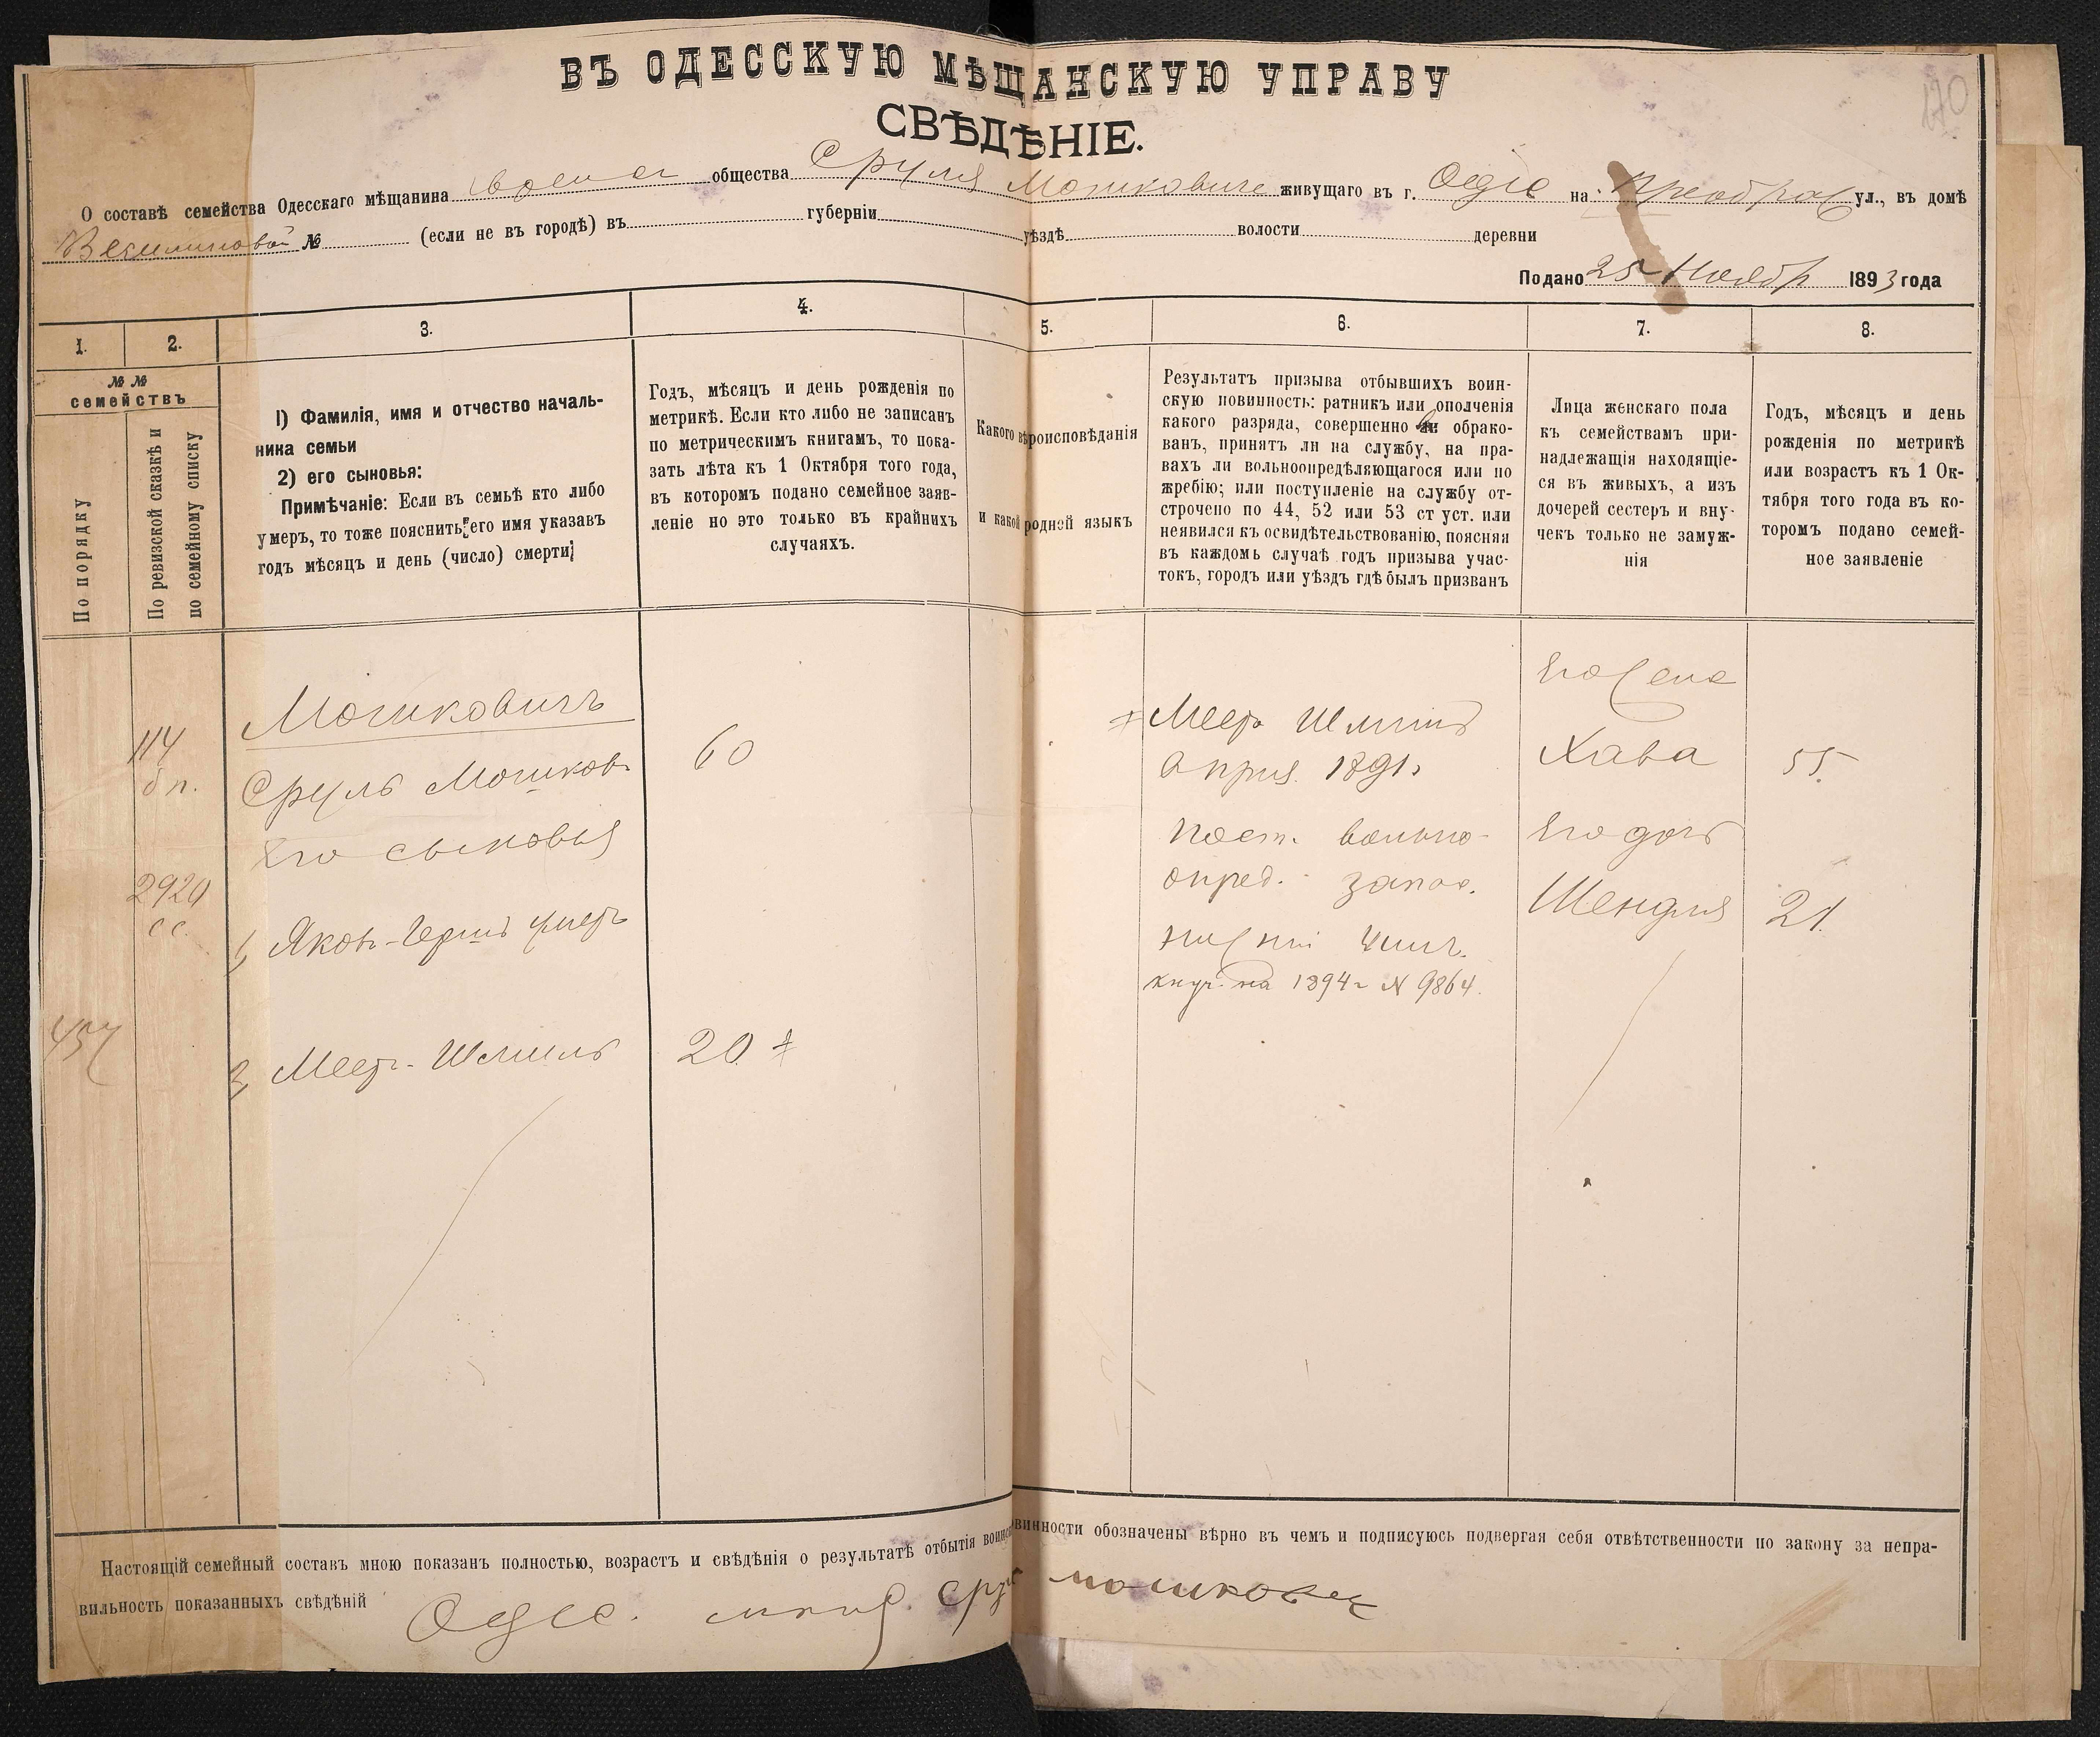 170
ВЪ ОДЕССКУЮ МѢЩАНСКУЮ УПРАВУ
СВѢДѢНІЕ.
О составѣ семейства Одесскаго мѣщанина общества Сруля Мошковича живущаго въ г. Одессѣ на Преображ ул., въ домѣ
№ (если не въ городѣ) въ губерніи уѣздѣ волости деревни
Подано 25 Ноября 1893 года
1.
2.
3.
4.
5.
6.
7.
8.
№ №
семействъ
По порядку
По ревизской сказкѣ и
по семейному списку
1) Фамилія, имя и отчество началь-
ника семьи
2) его сыновья:
Примѣчаніе: Если въ семьѣ кто либо
умеръ, то тоже пояснить его имя указавъ
годъ мѣсяцъ и день (число) смерти
Годъ, мѣсяцъ и день рожденія по
метрикѣ. Если кто либо не записанъ
по метрическимъ книгамъ, то пока-
зать лѣта къ 1 Октября того года,
въ которомъ подано семейное заяв-
леніе но это только въ крайнихъ
случаяхъ.
Какого вѣроисповѣданія
и какой родней языкъ
Результатъ призыва отбывшихъ воин-
скую повинность: ратникъ или ополченія
какого разряда, совершенно ли обрако-
ванъ, принятъ ли на службу, на пра-
вахъ ли вольноопредѣляющагося или по
жребію; или поступленіе на службу от-
строчено по 44, 52 или 53 ст уст. или
неявился къ освидѣтельствованію, поясняя
въ каждомъ случаѣ годъ призыва учас-
токъ, городъ или уѣздъ гдѣ былъ призванъ
Лица женскаго пола
къ семействамъ при-
надлежащія находящіе-
ся въ живыхъ, а изъ
дочерей сестеръ и вну-
чекъ только не замуж-
нія
Годъ, мѣсяцъ и день
рожденія по метрикѣ
или возрастъ къ 1 Ок-
тября того года въ ко-
торомъ подано семей-
ное заявленіе
114
б п.
Мошковичъ
Сруль Мошков.
60
Его сыновья
2920
с с.
1, Яковъ-Гершъ умеръ
2, Мееръ-Шмиль
20 ‡
‡ Мееръ Шмиль
Април. 1891г
пост. вольно-
опред. запас.
нижній чинъ.
на 1894 г № 9864.
Его жена
Хава
55.
Его дочь
Шендля
21.
Настоящій семейный составъ мною показанъ полностью, возрастъ и свѣдѣнія о результатѣ отбытія воинс винности обозначены вѣрно въ чемъ и подписуюсь подвергая себя отвѣтственности по закону за непра-
вильность показанныхъ свѣдѣній
Одес. Сру мошкович